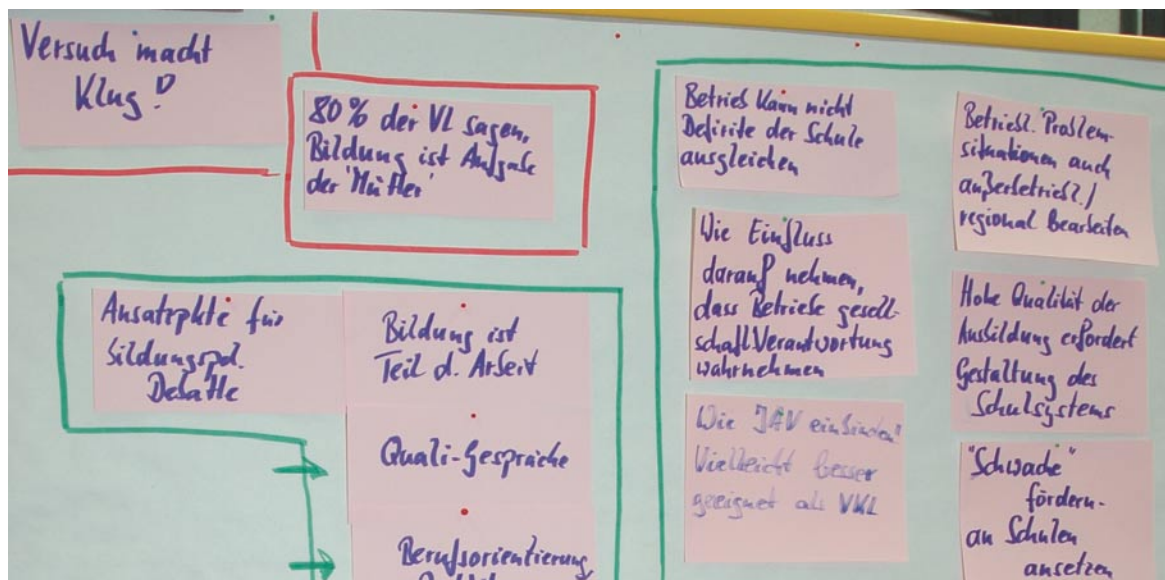 Versuch macht
Klug!
80% der VL sagen,
Bildung ist Aufgabe
der 'Mütter'
Ansatzpkte für
bildungspol.
Debatte
Bildung ist
Teil d. Arbeit
Quali-Gespräche
Berufsorientierung
Betrieb kann nicht
Defizite der Schule
ausgleichen
Wie Einfluss
darauf nehmen,
dass Betriebe gesell-
schaftl. Verantwortung
wahrnehmen
Wie JAV einbinden"
Vielleicht besser
geeignet als VKL
Betriebl. Problem-
situationen auch
außerbetriebl./
regional Bearbeiten
Hohe Qualität der
Ausbildung erfordert
Gestaltung des
Schulsystems
"Schwache"
fördern-
an Schulen
ansetzen